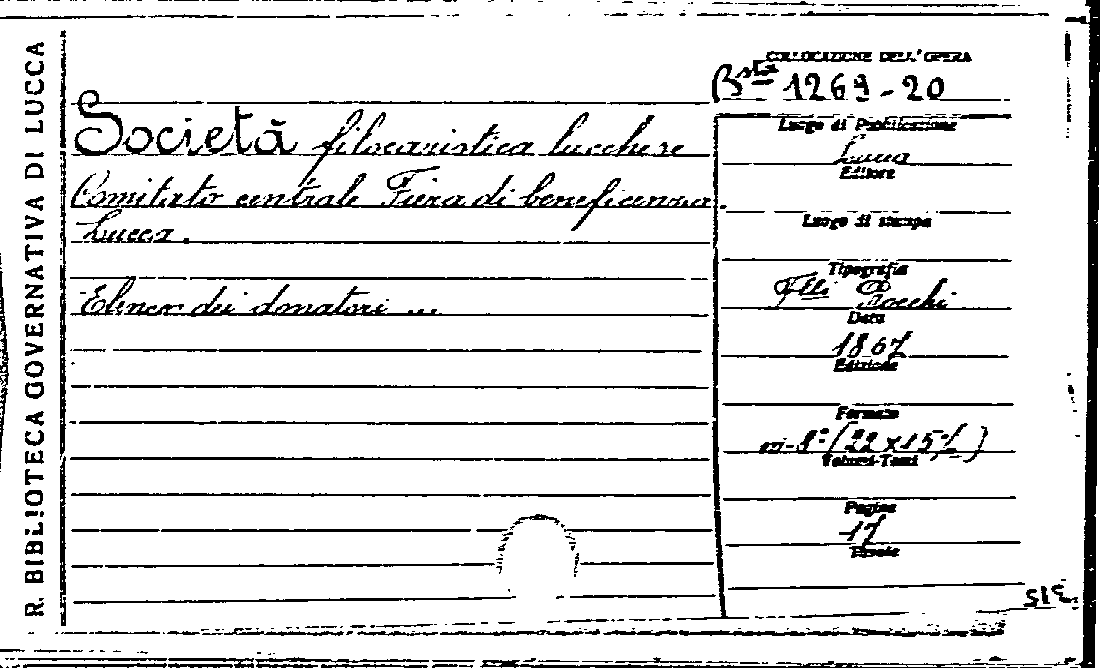 R. BIBLIOTECA GOVERNATIVA DI LUCCA
Società filocaristica lucchese
Comitato centrale Fiera di beneficenza.
Lucca.
Elenco dei donatori ...
COLLOCAZIONE DELL'OPERA
Bsta 1269-20
Luogo di Pubblicazione
Lucca
Editore
Luogo di stampa
Tipografia
Flli Rocchi
Data
1867
Edizione
Formato
in-8° (22 x 15 ½)
Volumi-Tomi
Pagine
17
Tavole